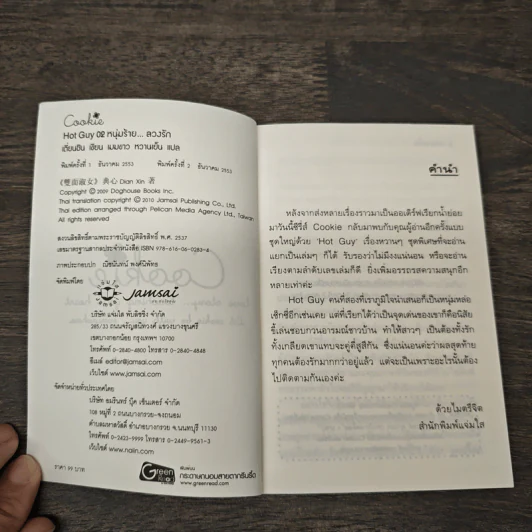 Cookie
Hot Guy 02 หนุ่มร้าย... ลวงรัก
เตี่ยนซิน เขียน เมฆขาว หวานเย็น แปล
พิมพ์ครั้งที่ 1 ธันวาคม 2553 พิมพ์ครั้งที่ 2 ธันวาคม 2553
《雙面淑女》典心 Dian Xin 著
Copyright © 2009 Doghouse Books Inc.
Thai translation copyright © 2010 Jamsai Publishing Co., Ltd.
Thai edition arranged through Pelican Media Agency Ltd., Taiwan
All rights reserved.
สงวนลิขสิทธิ์ตามพระราชบัญญัติลิขสิทธิ์ พ.ศ. 2537
เลขมาตรฐานสากลประจำหนังสือ ISBN 978-616-06-0283-4
ภาพประกอบปก
จัดพิมพ์โดย
Jamsai
บริษัท แจ่มใส พับลิชชิ่ง จำกัด
285/33 ถนนจรัญสนิทวงศ์ แขวงบางขุนศรี
เขตบางกอกน้อย กรุงเทพฯ 10700
โทรศัพท์ 0-2840-4800 โทรสาร 0-2840-4848
อีเมล์ editor@jamsai.com
เว็บไซต์ www.jamsai.com
จัดจำหน่ายทั่วประเทศโดย
บริษัท อมรินทร์ บุ๊ค เซ็นเตอร์ จำกัด
108 หมู่ที่ 2 ถนนบางกรวย-จงถนอม
ตำบลมหาสวัสดิ์ อำเภอบางกรวย จ.นนทบุรี 11130
โทรศัพท์ 0-2423-9999 โทรสาร 0-2449-9561-3
เว็บไซต์ www.naiin.com
ราคา 99 บาท
Green Read
พิมพ์บน
กระดาษถนอมสายตากรีนรี้ด
www.greenread.com
คำนำ
หลังจากส่งหลายเรื่องราวมาเป็นออเดิร์ฟเรียกน้ำย่อย
มาวันนี้ซีรี่ส์ Cookie กลับมาพบกับคุณผู้อ่านอีกครั้งแบบ
ชุดใหญ่ด้วย ‘Hot Guy’ เรื่องหวานๆ ชุดพิเศษที่จะอ่าน
แยกเป็นเล่มๆ ก็ได้ รับรองว่าไม่มึงงแน่นอน หรือจะอ่าน
เรียงตามลำดับเลขเล่มก็ดี ยิ่งเพิ่มอรรถรสความสนุกอีก
หลายเท่าค่ะ
Hot Guy คนที่สองที่เราภูมิใจนำเสนอก็เป็นหนุ่มหล่อ
เซ็กซี่อีกเช่นเคย แต่ที่เรียกได้ว่าเป็นจุดเด่นของเขาก็คือนิสัย
ขี้เล่นชอบกวนอารมณ์ชาวบ้าน ทำให้สาวๆ เป็นต้องทั้งรัก
ทั้งเกลียดเขาแทบจะคู่คี่สูสีกัน ซึ่งแน่นอนค่ะว่าผลสุดท้าย
ทุกคนต้องรักมากกว่าอยู่แล้ว แต่จะเป็นเพราะอะไรนั้นต้อง
ไปติดตามกันเองค่ะ
ด้วยไมตรีจิต
สำนักพิมพ์แจ่มใส